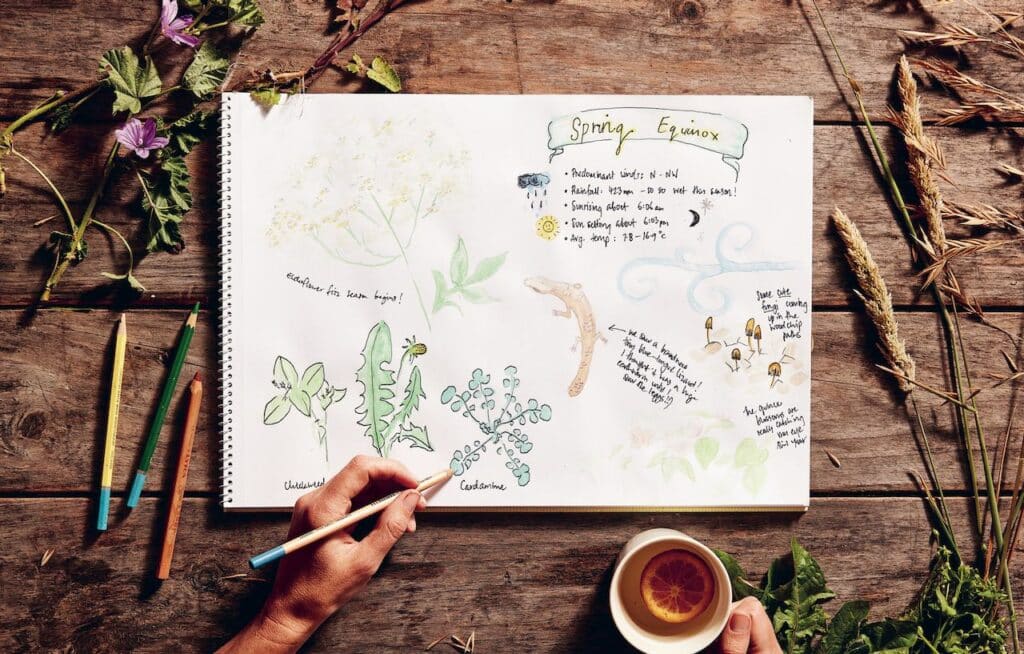 Spring Equinox
• Predominant winds: N - NW
• Rainfall: 423mm - so so wet this season!
• Sunrising about 6:06am
• Sun setting about 6:03pm
• Avg. temp: 7.8 - 16.9°c
Elderflower fizz season begins!
We saw a
blue-tongue lizard!
I thought it was a big
saw the legs!!)
Some cute
fungi coming
up in the
woodchip
paths
the quince
blossoms are
really catching
our eye
this year
Chickweed
Cardamine